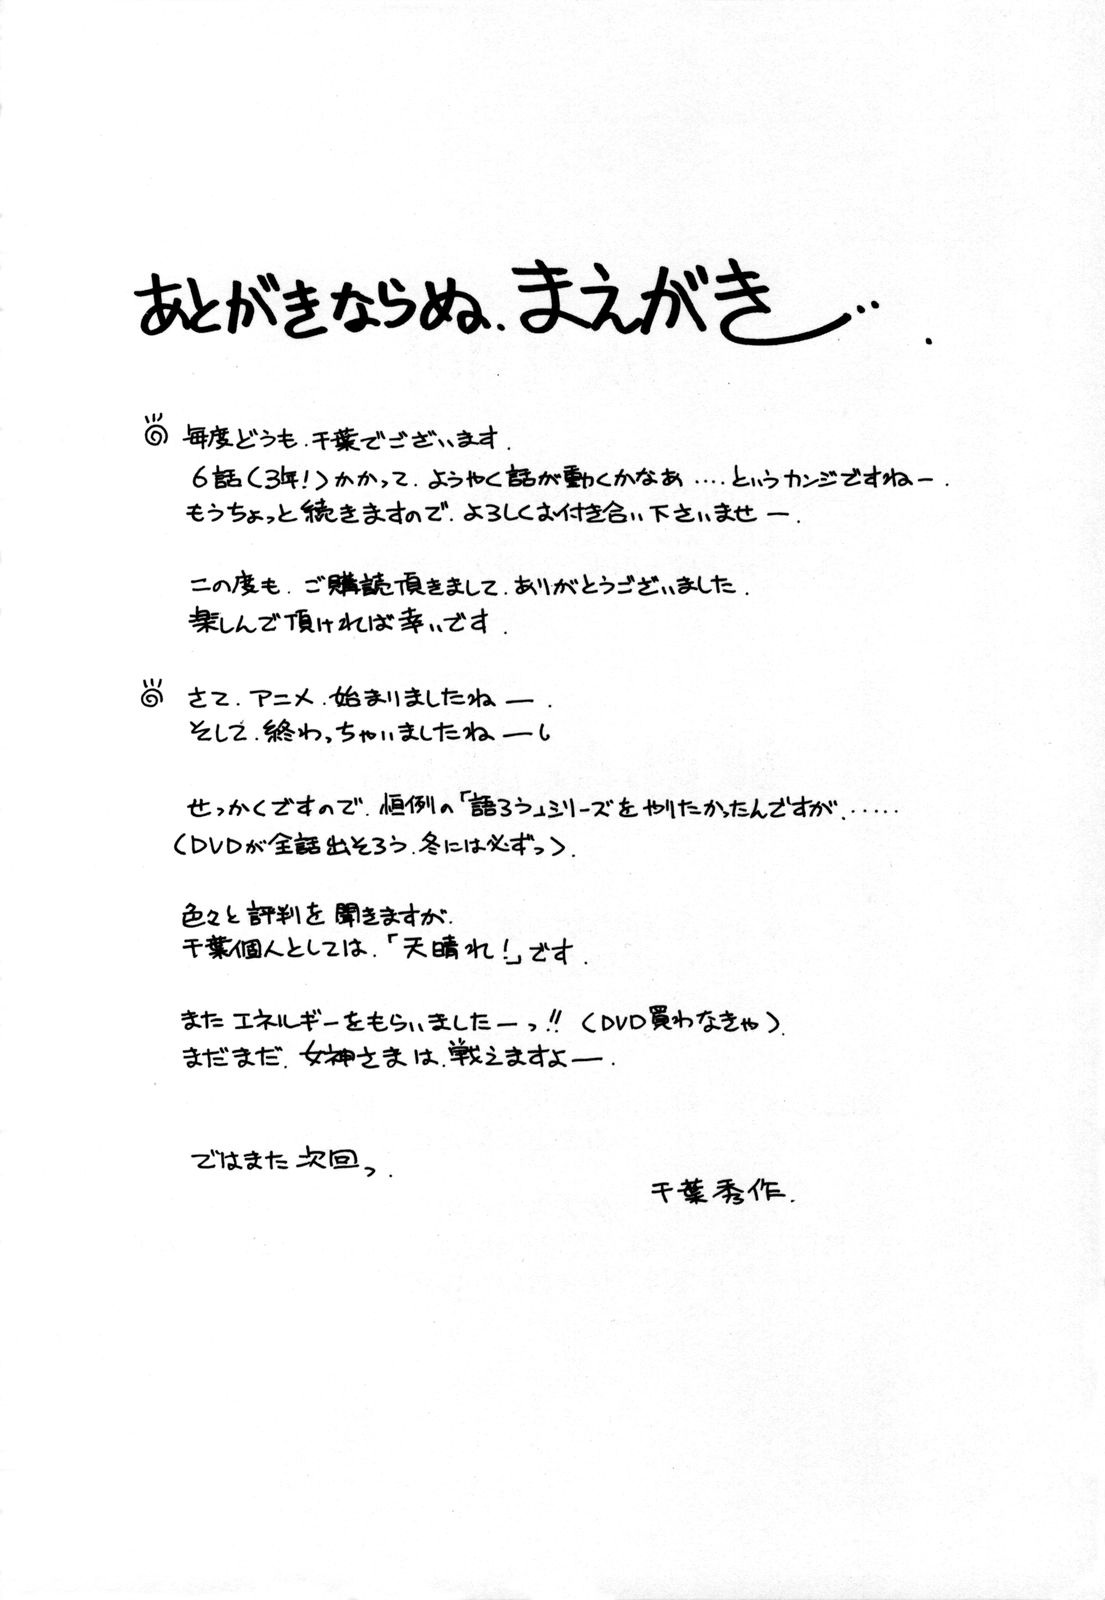 あとがきならぬ、まえがき…
毎度どうも、千葉でございます.
6話(3年!)かかって、ようやく話が動くかなあ‥‥というカンジですねー.
もうちょっと続きますので、よろしくお付き合い下さいませー.
この度も、ご購読頂きまして、ありがとうございました.
楽しんで頂ければ幸いです.
さて、アニメ、始まりましたねー.
そして、終わっちゃいましたねー
せっかくですので、恒例の「語ろう」シリーズをやりたかったんですが、‥‥‥
(DVDが全話出そろう、冬には必ずっ).
色々と評判を聞きますが、
千葉個人としては、「天晴れ!」です.
またエネルギーをもらいましたーっ!! (DVD買わなきゃ).
まだまだ、女神さまは、戦えますよー.
ではまた次回っ.
千葉秀作.